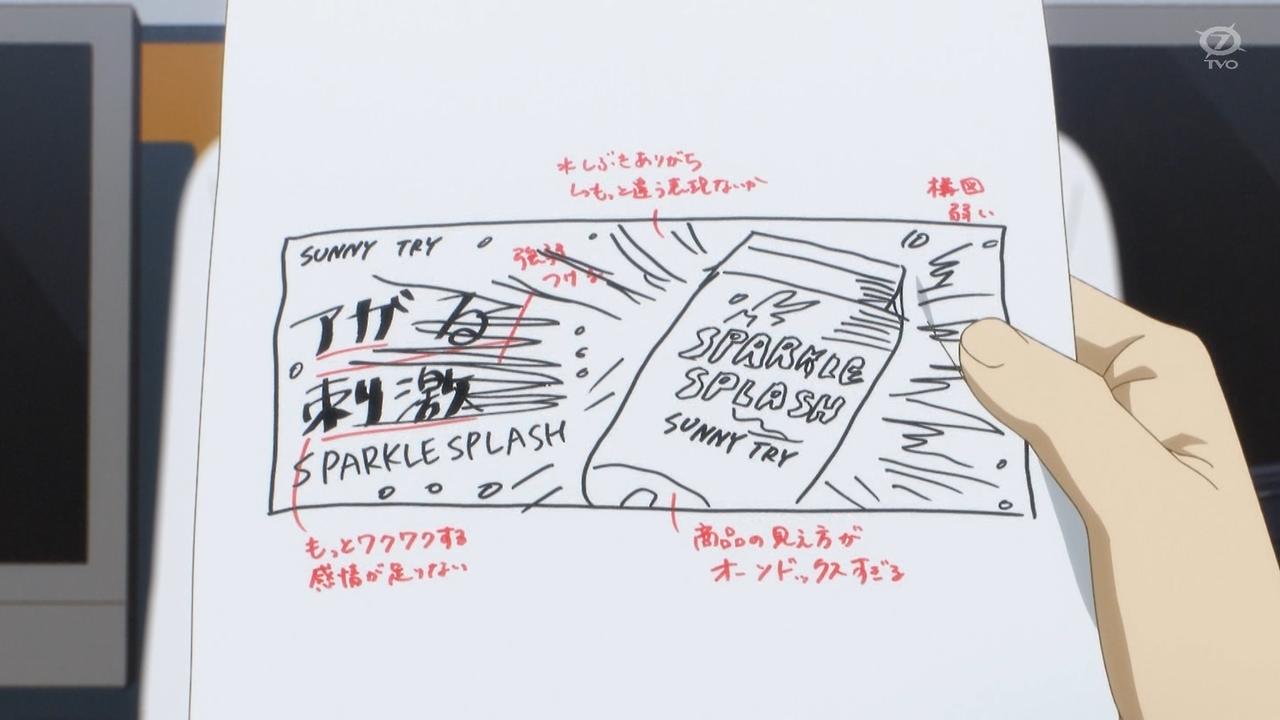 TVO
水しぶきありがち
もっと違う表現ないか
構図
弱い
SUNNY TRY
強弱
つける
アガる
刺激
SPARKLE SPLASH
SPARKLE
SPLASH
SUNNY TRY
もっとワクワクする
感情が足りない
商品の見え方が
オーソドックスすぎる